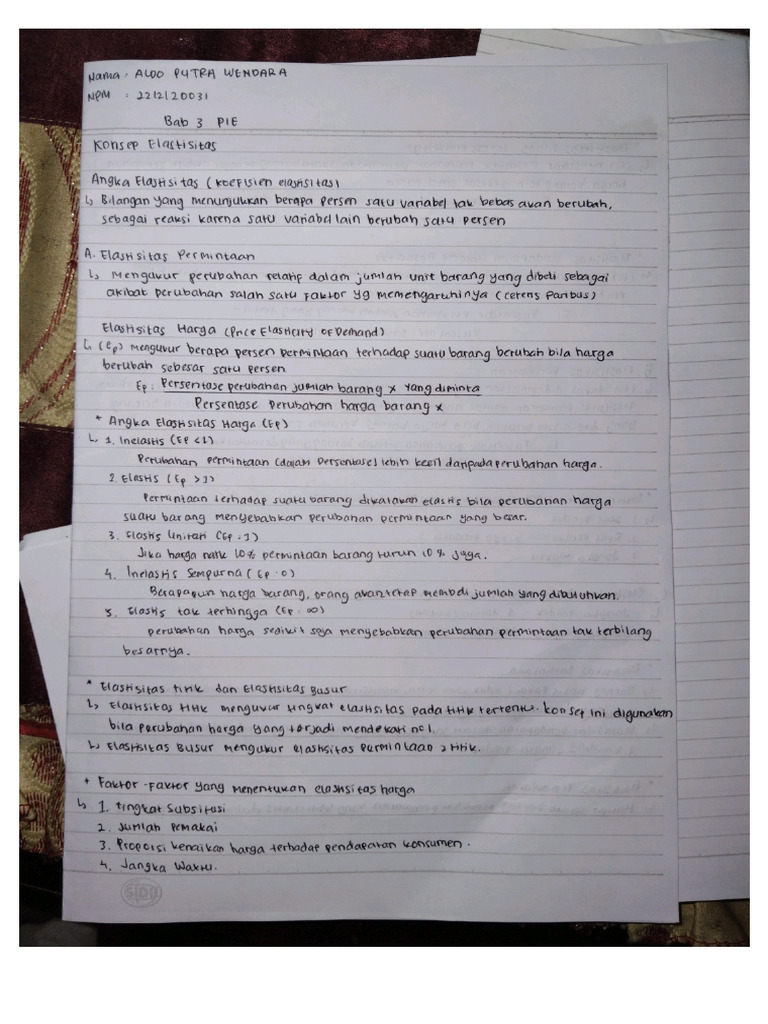 Nama : ALDO PUTRA WENDARA
NPM : 2212120031
Bab 3 PIE
Konsep Elastisitas
Angka Elastisitas (Koefisien elastisitas)
↳ Bilangan yang menunjukkan berapa persen satu variabel tak bebas akan berubah,
sebagai reaksi karena satu variabel lain berubah satu persen
A. Elastisitas Permintaan
↳ Mengukur perubahan relatif dalam jumlah unit barang yang dibeli sebagai
akibat perubahan salah satu faktor yg memengaruhinya (ceteris Paribus)
Elastisitas Harga (Price Elasticity of Demand)
↳ (Ep) mengukur berapa persen permintaan terhadap suatu barang berubah bila harga
berubah sebesar satu persen
Ep : Persentase perubahan jumlah barang x yang diminta
Persentase perubahan harga barang x
* Angka Elastisitas Harga (Ep)
↳ 1. Inelastis (Ep < 1)
Perubahan permintaan (dalam Persentase) lebih kecil daripada perubahan harga.
2. Elastis (Ep > 1)
Permintaan terhadap suatu barang dikatakan elastis bila perubahan harga
suatu barang menyebabkan perubahan permintaan yang besar.
3. Elastis Unitari (Ep = 1)
Jika harga naik 10% permintaan barang turun 10% juga.
4. Inelastis Sempurna (Ep = 0)
Berapapun harga barang, orang akan tetap membeli jumlah yang dibutuhkan.
5. Elastis tak terhingga (Ep = ∞)
perubahan harga sedikit saja menyebabkan perubahan permintaan tak terbilang
besarnya.
* Elastisitas titik dan Elastisitas Busur
↳ Elastisitas titik mengukur tingkat elastisitas pada titik tertentu. Konsep ini digunakan
bila perubahan harga yang terjadi mendekati nol.
↳ Elastisitas Busur mengukur elastisitas permintaan 2 titik.
* Faktor-Faktor yang menentukan elastisitas harga
↳ 1. Tingkat Subsitusi
2. Jumlah Pemakai
3. Proporsi kenaikan harga terhadap pendapatan konsumen.
4. Jangka Waktu.
SIDU